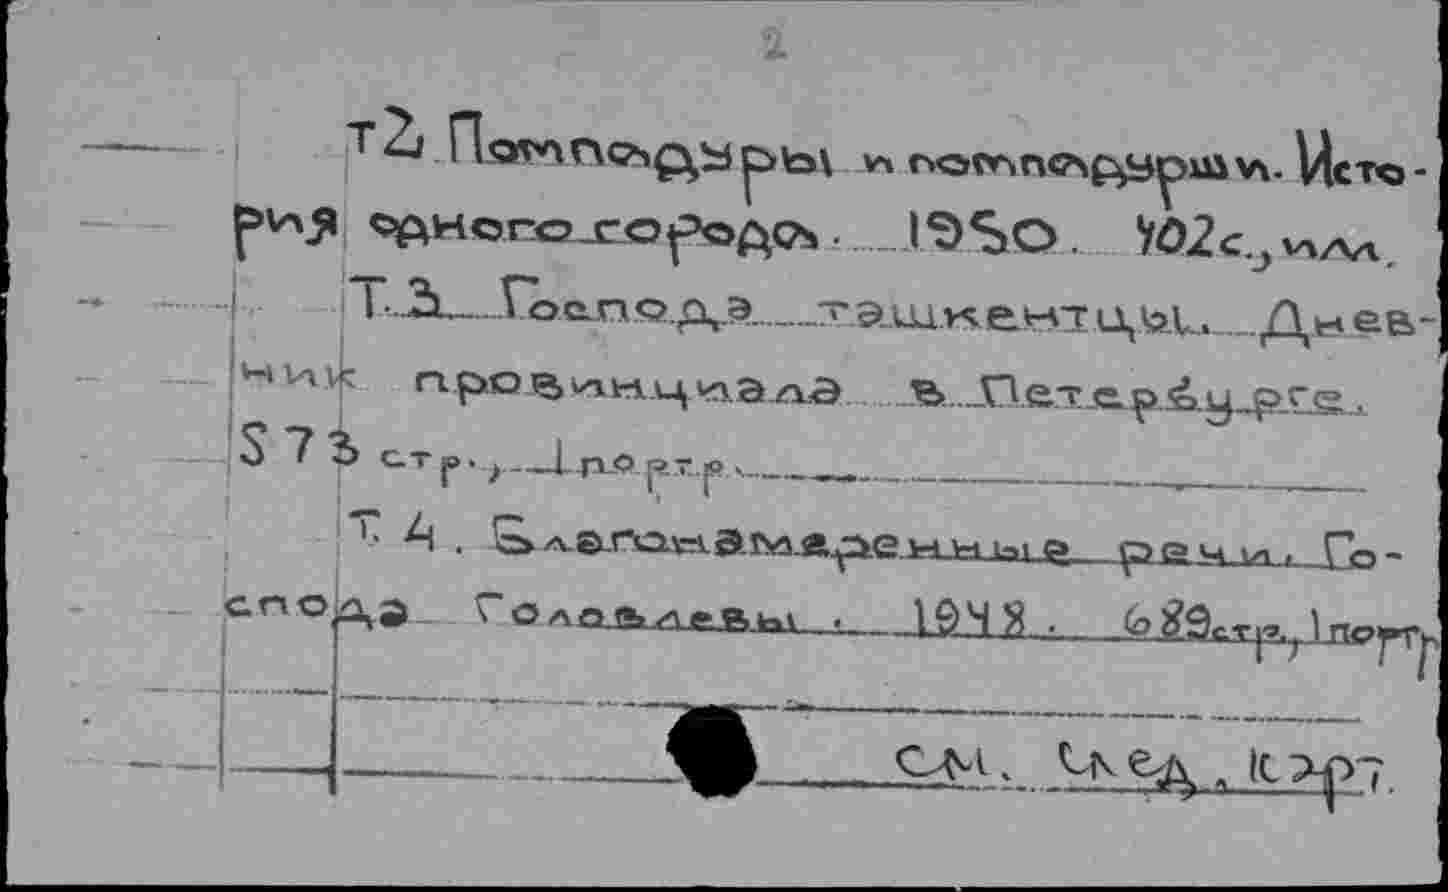 2
Т2, Помпадуры и помпадурши. Исто-
рия одного города. 1950. 402с., илл.
Т.3. Господа ташкентцы. Днев-
ник провинциала в Петербурге.
573 стр., 1 портр.
Т. 4. Благонамеренные речи. Го-
спода Головлевы. 1948. 689стр., 1 портр
см. след. карт.